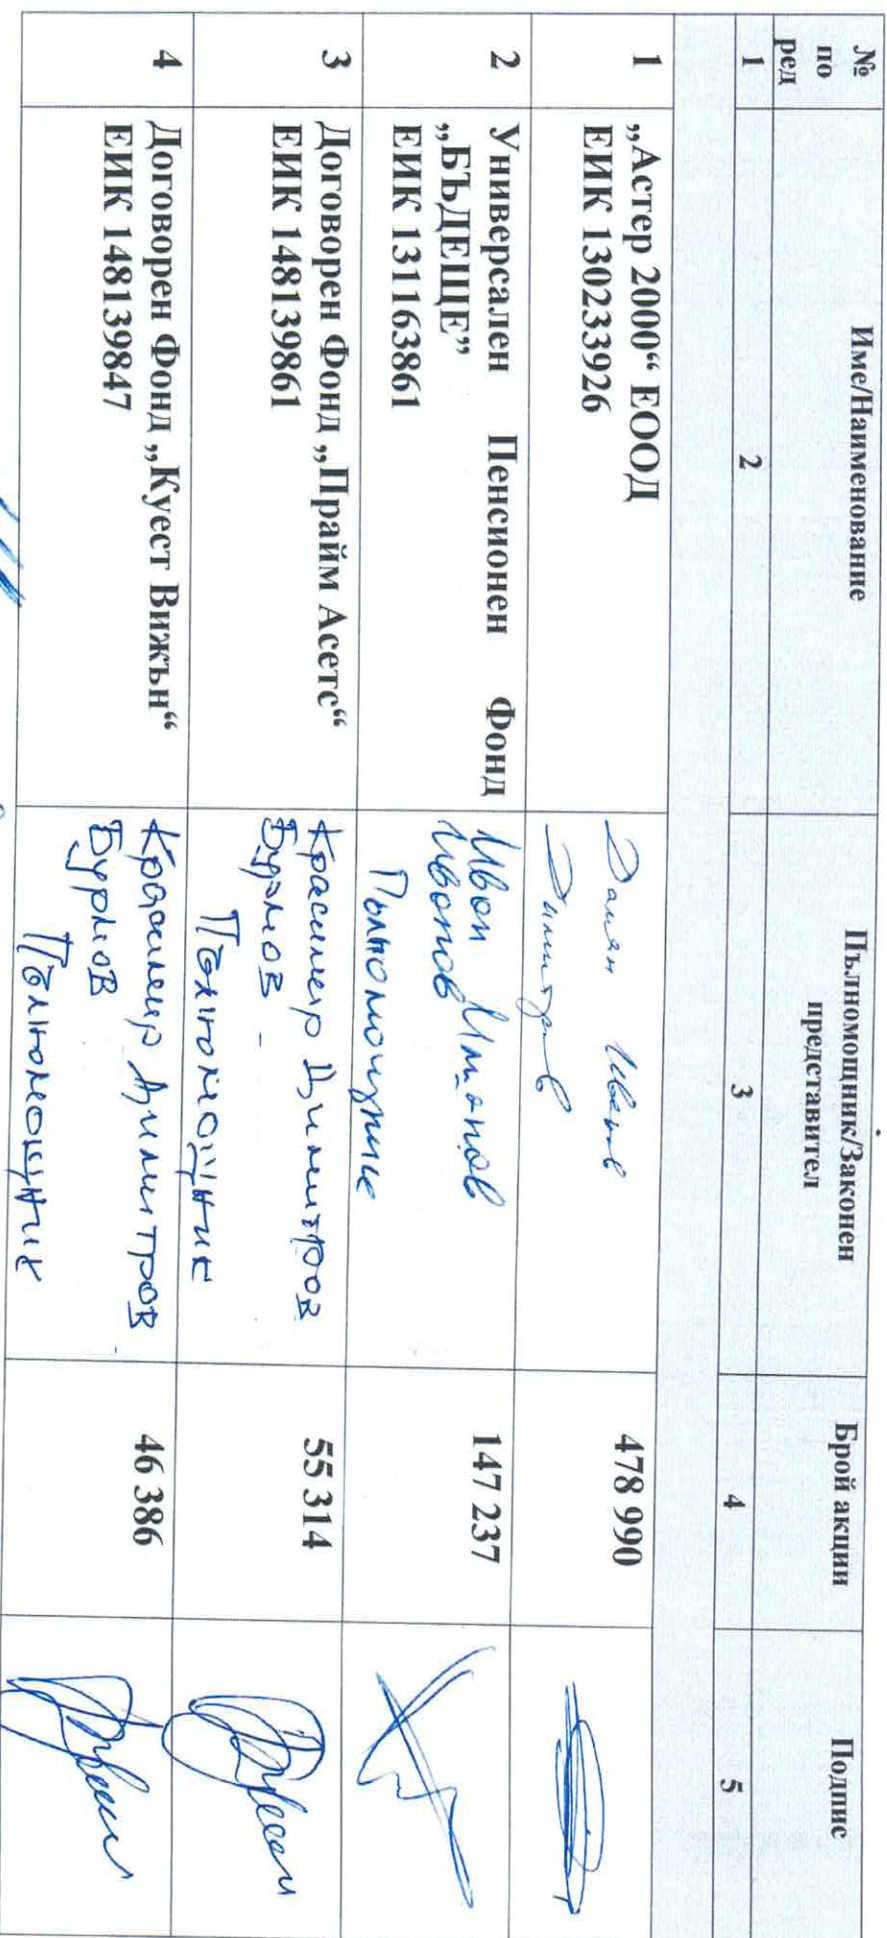 №
по
ред
Име/Наименование
Пълномощник/Законен
представител
Брой акции
Подпис
1
2
3
4
5
1
„Астер 2000“ ЕООД
ЕИК 130233926
Иванов
Димитров
478 990
2
Универсален Пенсионен Фонд
„БЪДЕЩЕ”
ЕИК 131163861
Иван
Иванов
Пълномощник
147 237
3
Договорен Фонд „Прайм Асетс“
ЕИК 148139861
Красимир Димитров
Бурмов -
Пълномощник
55 314
4
Договорен Фонд „Куест Вижън“
ЕИК 148139847
Красимир Димитров
Бурмов
Пълномощник
46 386